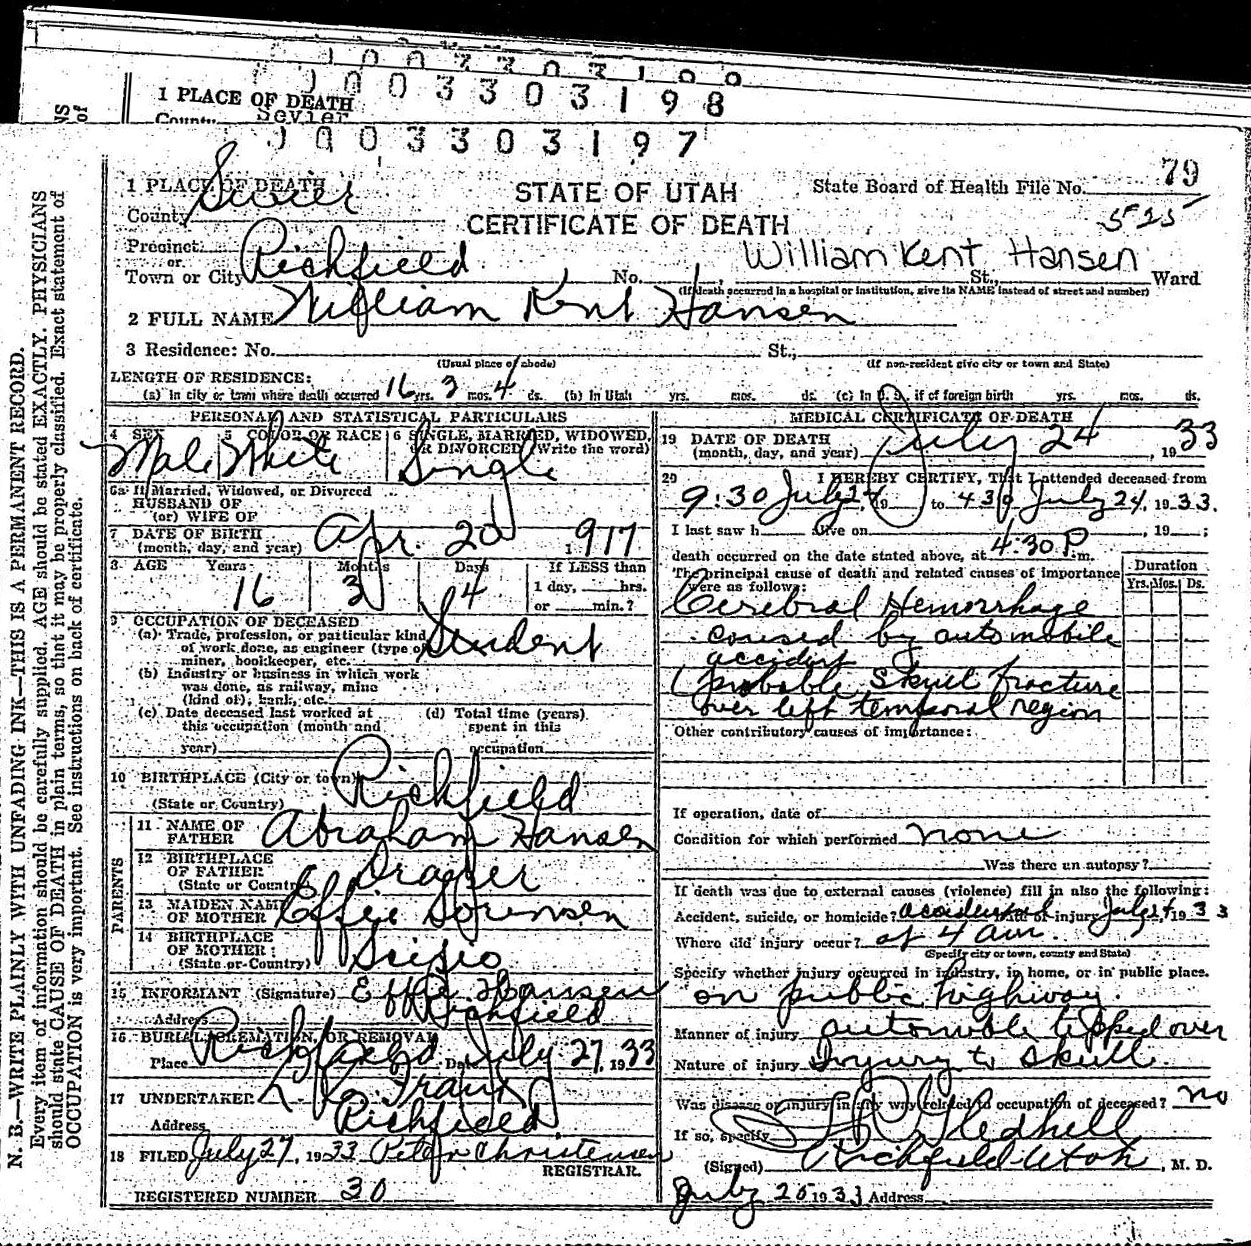 1 0 0 3 3 0 3 1 9 9
1 0 0 3 3 0 3 1 9 8
1 PLACE OF DEATH
County Sevier
1 0 0 3 3 0 3 1 9 7
N. B.—WRITE PLAINLY WITH UNFADING INK—THIS IS A PERMANENT RECORD.
Every item of information should be carefully supplied. AGE should be stated EXACTLY. PHYSICIANS
should state CAUSE OF DEATH in plain terms, so that it may be properly classified. Exact statement of
OCCUPATION is very important. See instructions on back of certificate.
79
STATE OF UTAH
CERTIFICATE OF DEATH
State Board of Health File No.
525
1 PLACE OF DEATH
County Sevier
Precinct
or
Town or City Richfield No. St., Ward
William Kent Hansen
(If death occurred in a hospital or institution, give its NAME instead of street and number)
2 FULL NAME William Kent Hansen
3 Residence: No. St.;
(Usual place of abode) (If non-resident give city or town and State)
LENGTH OF RESIDENCE:
(a) In city or town where death occurred 16 yrs. 3 mos. 4 ds. (b) In Utah yrs. mos. ds. (c) In U. S. if of foreign birth yrs. mos. ds.
PERSONAL AND STATISTICAL PARTICULARS
4 SEX Male
5 COLOR OR RACE White
6 SINGLE, MARRIED, WIDOWED, OR DIVORCED (Write the word) Single
6a If Married, Widowed, or Divorced
HUSBAND OF
(or) WIFE OF
7 DATE OF BIRTH
(month, day, and year) Apr. 20 1917
8 AGE Years 16 Months 3 Days 4
If LESS than
1 day, hrs.
or min.?
9 OCCUPATION OF DECEASED
(a) Trade, profession, or particular kind
of work done, as engineer (type of
miner, bookkeeper, etc. Student
(b) Industry or business in which work
was done, as railway, mine
(kind of), bank, etc.
(c) Date deceased last worked at
this occupation (month and
year)
(d) Total time (years)
spent in this
occupation
10 BIRTHPLACE (City or town) Richfield
(State or Country)
PARENTS
11 NAME OF
FATHER Abraham Hansen
12 BIRTHPLACE
OF FATHER Draper
(State or Country)
13 MAIDEN NAME
OF MOTHER Effie Sorensen
14 BIRTHPLACE
OF MOTHER: Scipio
(State or Country)
15 INFORMANT (Signature) Effie Hansen
Address Richfield
16 BURIAL, CREMATION, OR REMOVAL
Place Richfield Date July 27, 1933
17 UNDERTAKER
Address Richfield
18 FILED July 27, 1933 Peter Christensen
REGISTRAR.
REGISTERED NUMBER 30
MEDICAL CERTIFICATE OF DEATH
19 DATE OF DEATH
(month, day, and year) July 24, 1933
20 I HEREBY CERTIFY, That I attended deceased from
9:30 July 24, 19 to 430p July 24, 1933.
I last saw h alive on , 19 ;
death occurred on the date stated above, at 4:30 P.m.
The principal cause of death and related causes of importance
were as follows:
Duration
Yrs. Mos. Ds.
Cerebral Hemorrhage
caused by automobile
accident
(probable skull fracture
over left temporal region
Other contributory causes of importance:
If operation, date of
Condition for which performed none
Was there an autopsy?
If death was due to external causes (violence) fill in also the following:
Accident, suicide, or homicide? accidental Date of injury July 24 1933
Where did injury occur? at 4 am.
(Specify city or town, county and State)
Specify whether injury occurred in industry, in home, or in public place.
on public highway.
Manner of injury automobile tipped over
Nature of injury Injury to skull
Was disease or injury in any way related to occupation of deceased? no
If so, specify
(Signed) Gledhill, M. D.
Richfield Utah
July 25 1933 Address